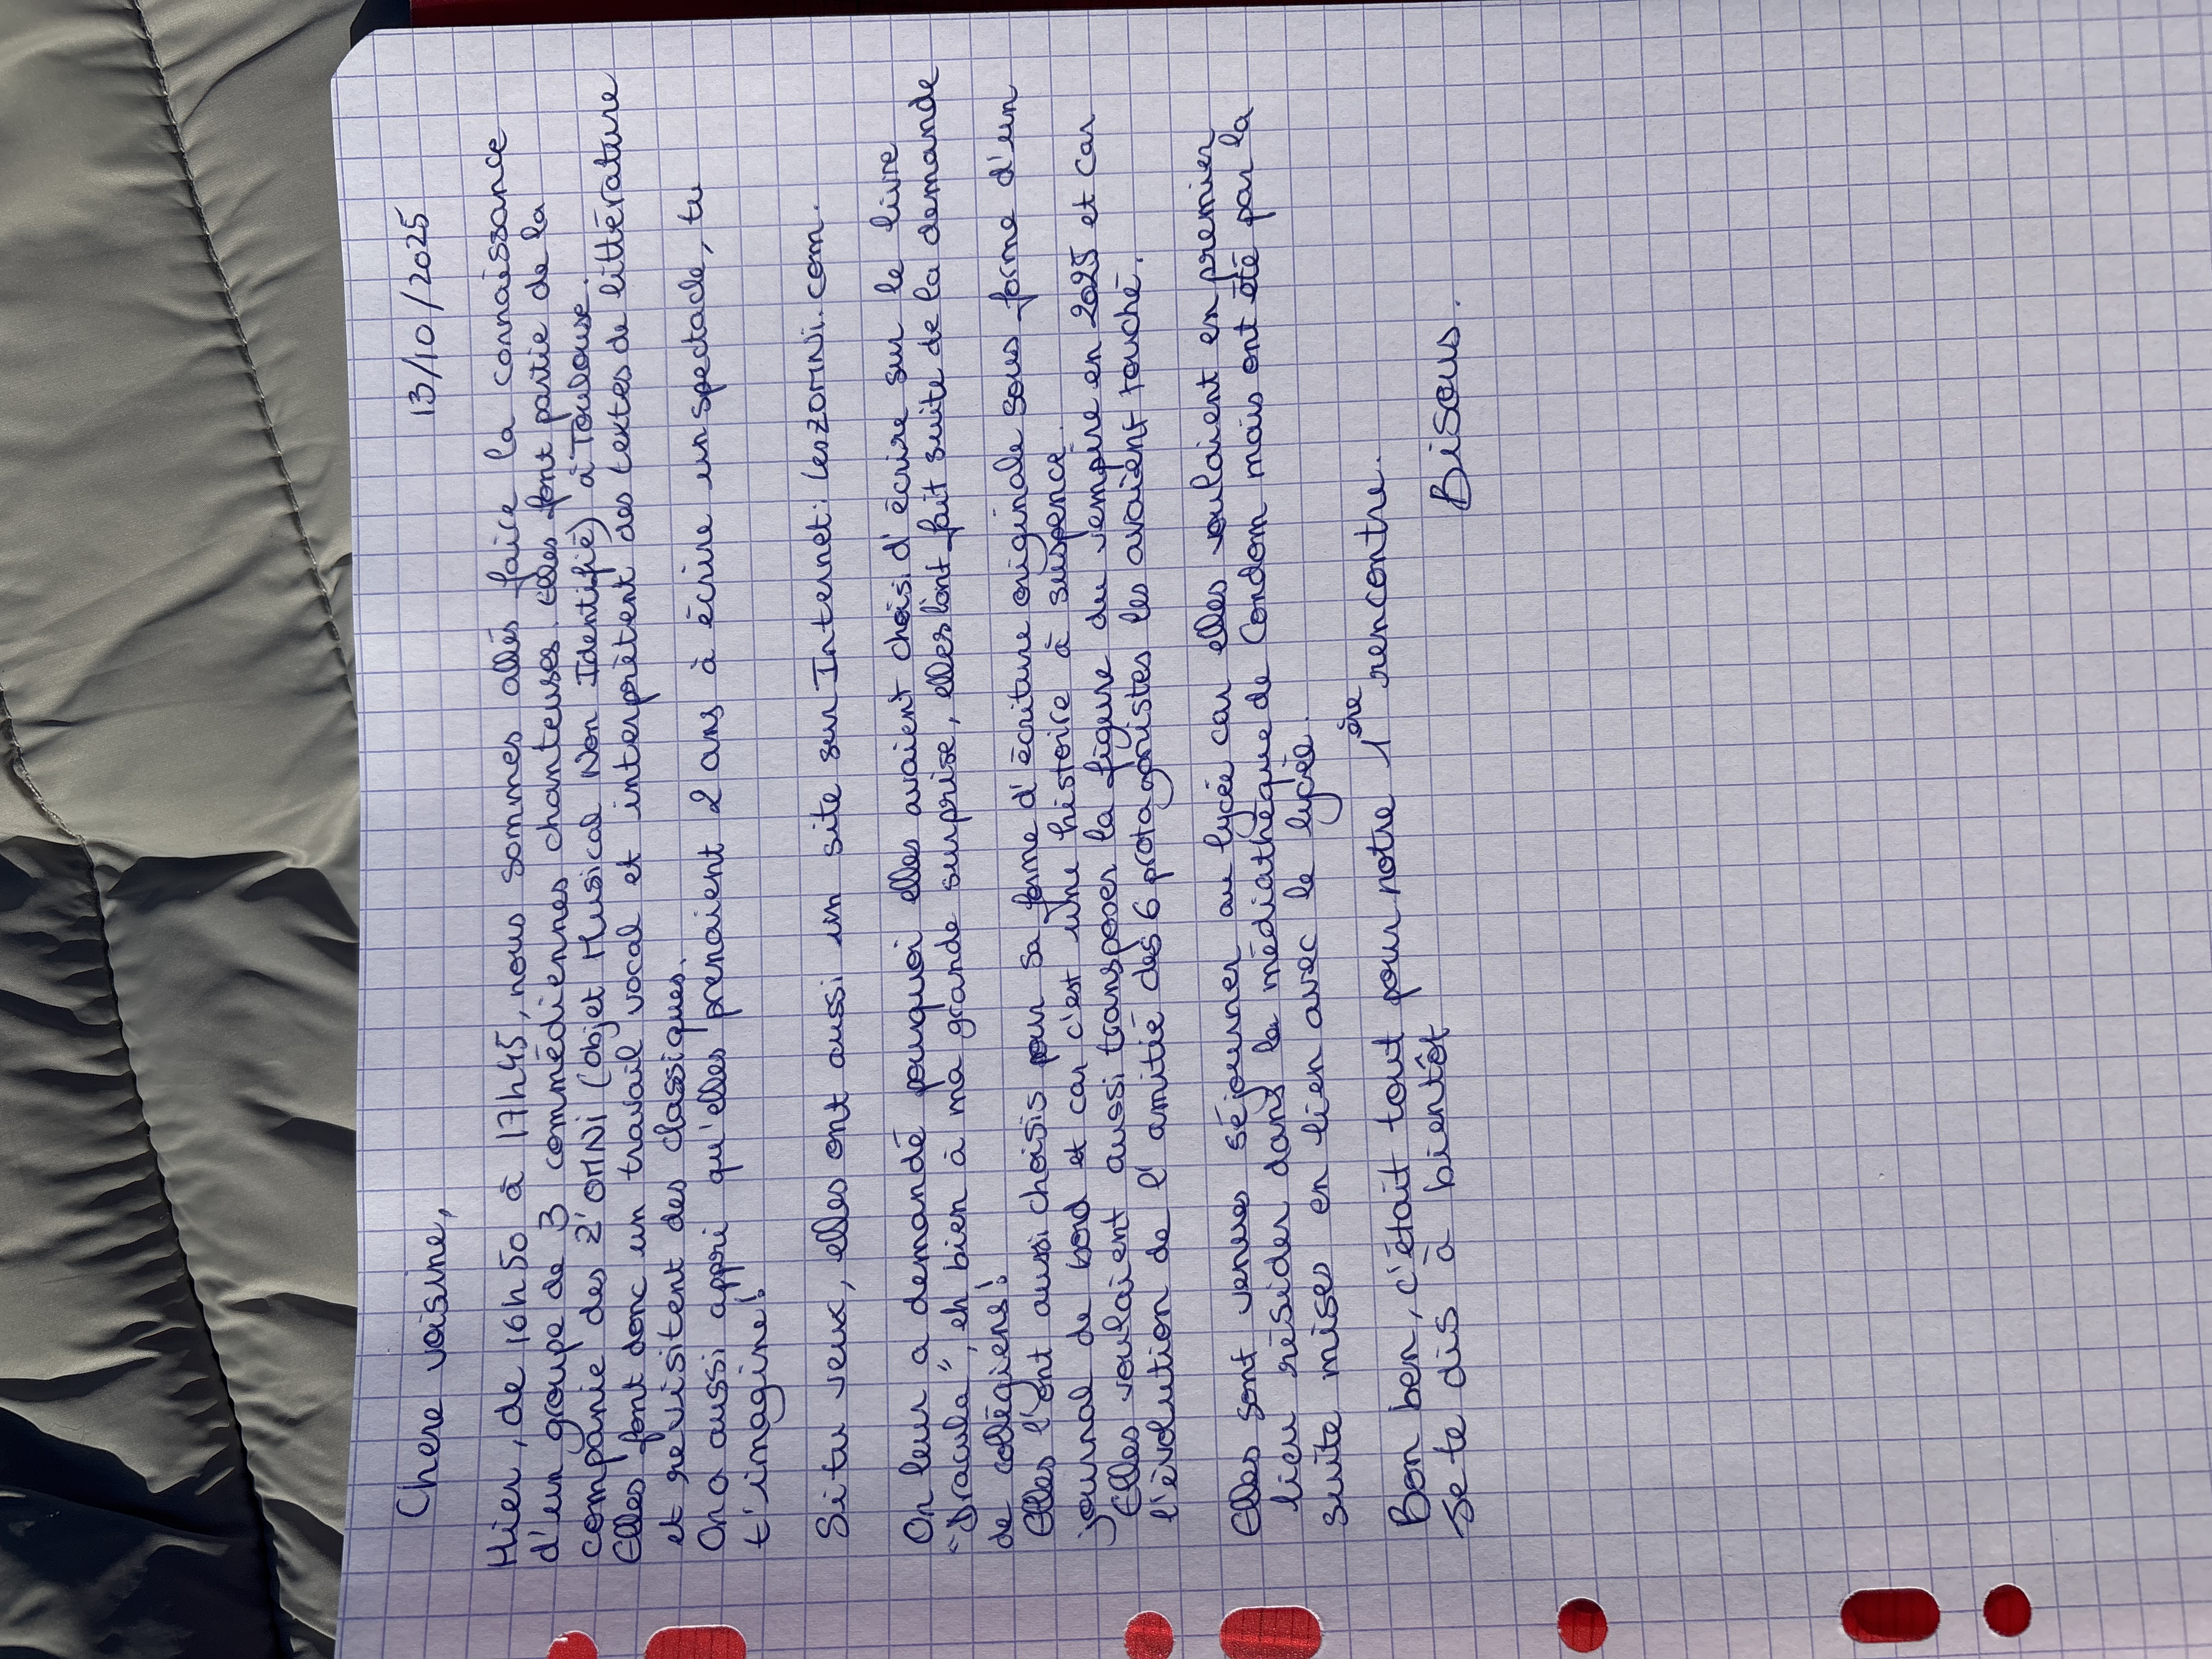 13/10/2025
Chere voisine,
Hier, de 16h50 à 17h45, nous sommes allés faire la connaissance
d'un groupe de 3 commédiennes chanteuses. Elles font partie de la
companie des Z'OMNI (objet Musical Non Identifié) à Toulouse.
Elles font donc un travail vocal et interprètent des textes de littérature
et revisitent des classiques.
On a aussi appri qu'elles prenaient 2 ans à écrire un spectacle, tu
t'imagine!
Si tu veux, elles ont aussi un site sur Internet: leszomni.com.
On leur a demandé pourquoi elles avaient choisi d'écrire sur le livre
"Dracula", eh bien à ma grande surprise, elles l'ont fait suite de la demande
de collégiens!
Elles l'ont aussi choisis pour sa forme d'écriture originale sous forme d'un
journal de bord et car c'est une histoire à suspence.
Elles voulaient aussi transposer la figure du vempire en 2025 et car
l'évolution de l'amitié des 6 protagonistes les avaient touché.
Elles sont venues séjourner au lycée car elles voulaient en premier
lieu résider dans la médiathèque de Condom mais ont été par la
suite mises en lien avec le lycée.
Bon ben, c'était tout pour notre 1ère rencontre.
Je te dis à bientôt
Bisous.